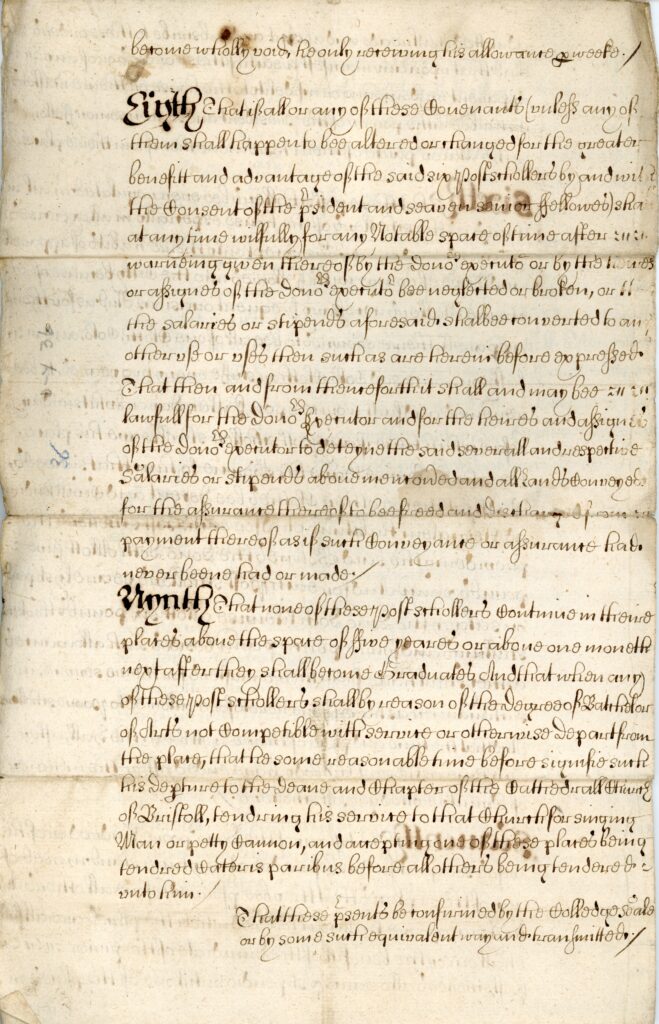 become wholly void, he only receiving his allowance p weeke./
Eigth That if all or any of these Covenants (unless any of
them shall happen to bee altered or changed for the greater
benefitt and advantage of the said six Post schollers by and wi
the Consent of the psident and seaven senior ffellowes) sha
at any time wilfully for any Notable space of time after
warneing given thereof by the dono:rs executor or by the heires
or assignes of the dono:rs executor bee neglected or broken, or
the salaries or stipends aforesaid shalbee converted to an
other use or uses then such as are herein before expressed
That then and from thenceforth it shall and may bee
lawfull for the dono:rs Executor and for the heires and assignes
of the dono:rs executor to deteyne the said severall and respective
Salaries or stipends above menconed and all Lands Conveyed
for the assurance thereof to bee freed and discharged from
payment thereof as if such Conveyance or assurance had
never beene had or made./
Nynth That none of these Post schollers Continue in theire
places above the space of ffive yeares or above one moneth
next after they shall become Graduates And that when any
of these Post schollers shall by reason of the degree of Batchelor
of Arts not Competible with service or otherwise depart from
the place, that he some reasonable time before signifie such
his depture to the deane and Chapter of the Cathedrall Church
of Bristoll, tendring his service to that Church for singing
Man or petty Cannon, and accepting one of these places being
tendred Cæteris paribus before all others being tendered
unto him./
That these psents be confirmed by the Colledge seale
or by some such equivalent way and transmitted:/